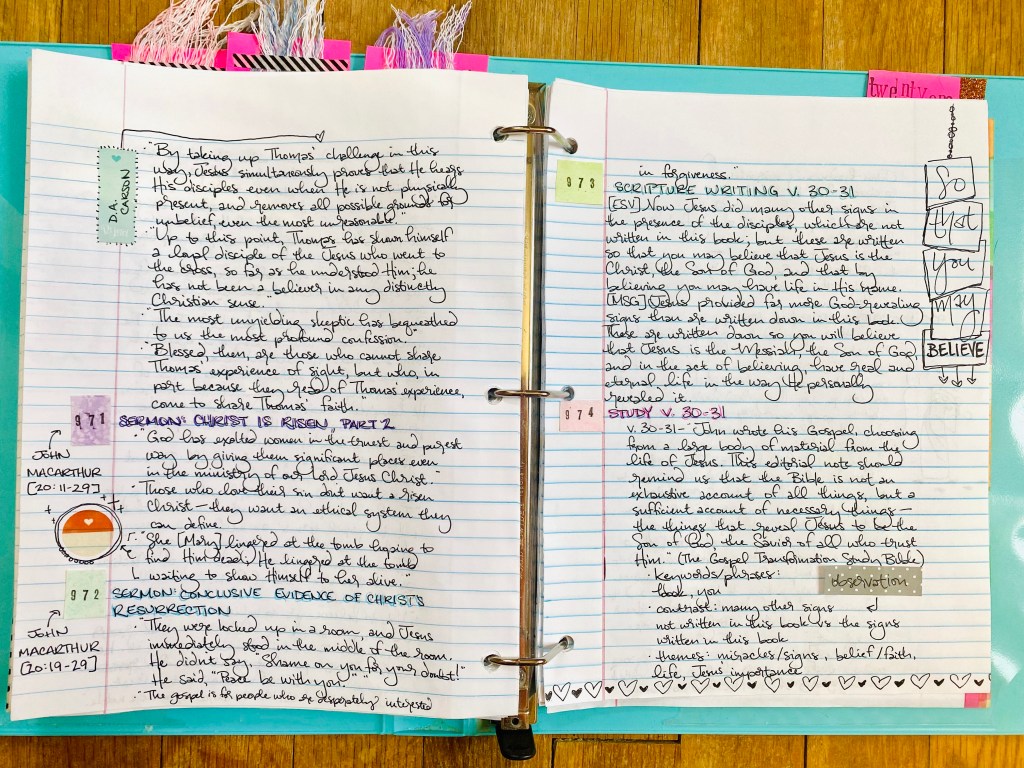 "By taking up Thomas' challenge in this
way, Jesus simultaneously proves that He hears
His disciples even when He is not physically
present, and removes all possible grounds for
unbelief, even the most unreasonable."
D.A. CARSON
"Up to this point, Thomas has shown himself
a loyal disciple of the Jesus who went to
the cross, so far as he understood Him; he
has not been a believer in any distinctly
Christian sense."
"The most unyielding skeptic has bequeathed
to us the most profound confession."
"Blessed, then, are those who cannot share
Thomas' experience of sight, but who, in
part because they read of Thomas' experience,
come to share Thomas' faith.
971 SERMON: CHRIST IS RISEN, PART 2
JOHN
MACARTHUR
[20:11-29]
· "God has exalted women in the truest and purest
way by giving them significant places even
in the ministry of our Lord Jesus Christ."
· Those who love their sin don't want a risen
Christ—they want an ethical system they
can define.
· "She [Mary] lingered at the tomb hoping to
find Him dead; He lingered at the tomb
waiting to show Himself to her alive."
972 SERMON: CONCLUSIVE EVIDENCE OF CHRIST'S
RESURRECTION
JOHN
MACARTHUR
[20:19-29]
· "They were locked up in a room, and Jesus
immediately stood in the middle of the room.
He didn't say, "Shame on you for your doubt!"
He said, "Peace be with you.""
· "The gospel is for people who are desperately interested
twenty
in forgiveness."
973 SCRIPTURE WRITING V. 30-31
[ESV] Now Jesus did many other signs in
the presence of the disciples, which are not
written in this book; but these are written
so that you may believe that Jesus is the
Christ, the Son of God, and that by
believing you may have life in His name.
[MSG] Jesus provided far more God-revealing
signs than are written down in this book.
These are written down so you will believe
that Jesus is the Messiah, the Son of God,
and in the act of believing, have real and
eternal life in the way He personally
revealed it.
So
that
you
may
BELIEVE
974 STUDY V. 30-31
v. 30-31- "John wrote his Gospel, choosing
from a large body of material from the
life of Jesus. This editorial note should
remind us that the Bible is not an
exhaustive account of all things, but a
sufficient account of necessary things—
the things that reveal Jesus to be the
Son of God, the Savior of all who trust
Him." (The Gospel Transformation Study Bible)
observation
· keywords/phrases:
book, you
· contrast: many other signs
not written in this book vs the signs
written in this book
· themes: miracles/signs, belief/faith,
life, Jesus' importance